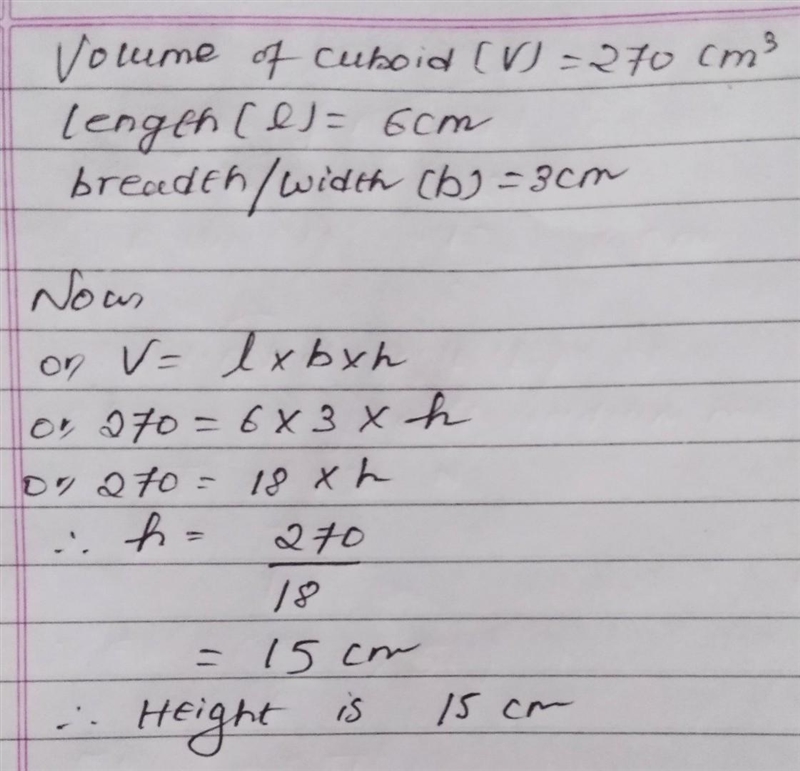 Volume of cuboid (V) = 270 cm³
length (l) = 6cm
breadth/width (b) = 3cm
Now,
or, V = l x b x h
or, 270 = 6 x 3 x h
or, 270 = 18 x h
∴ h = 270
18
= 15 cm
∴ Height is 15 cm